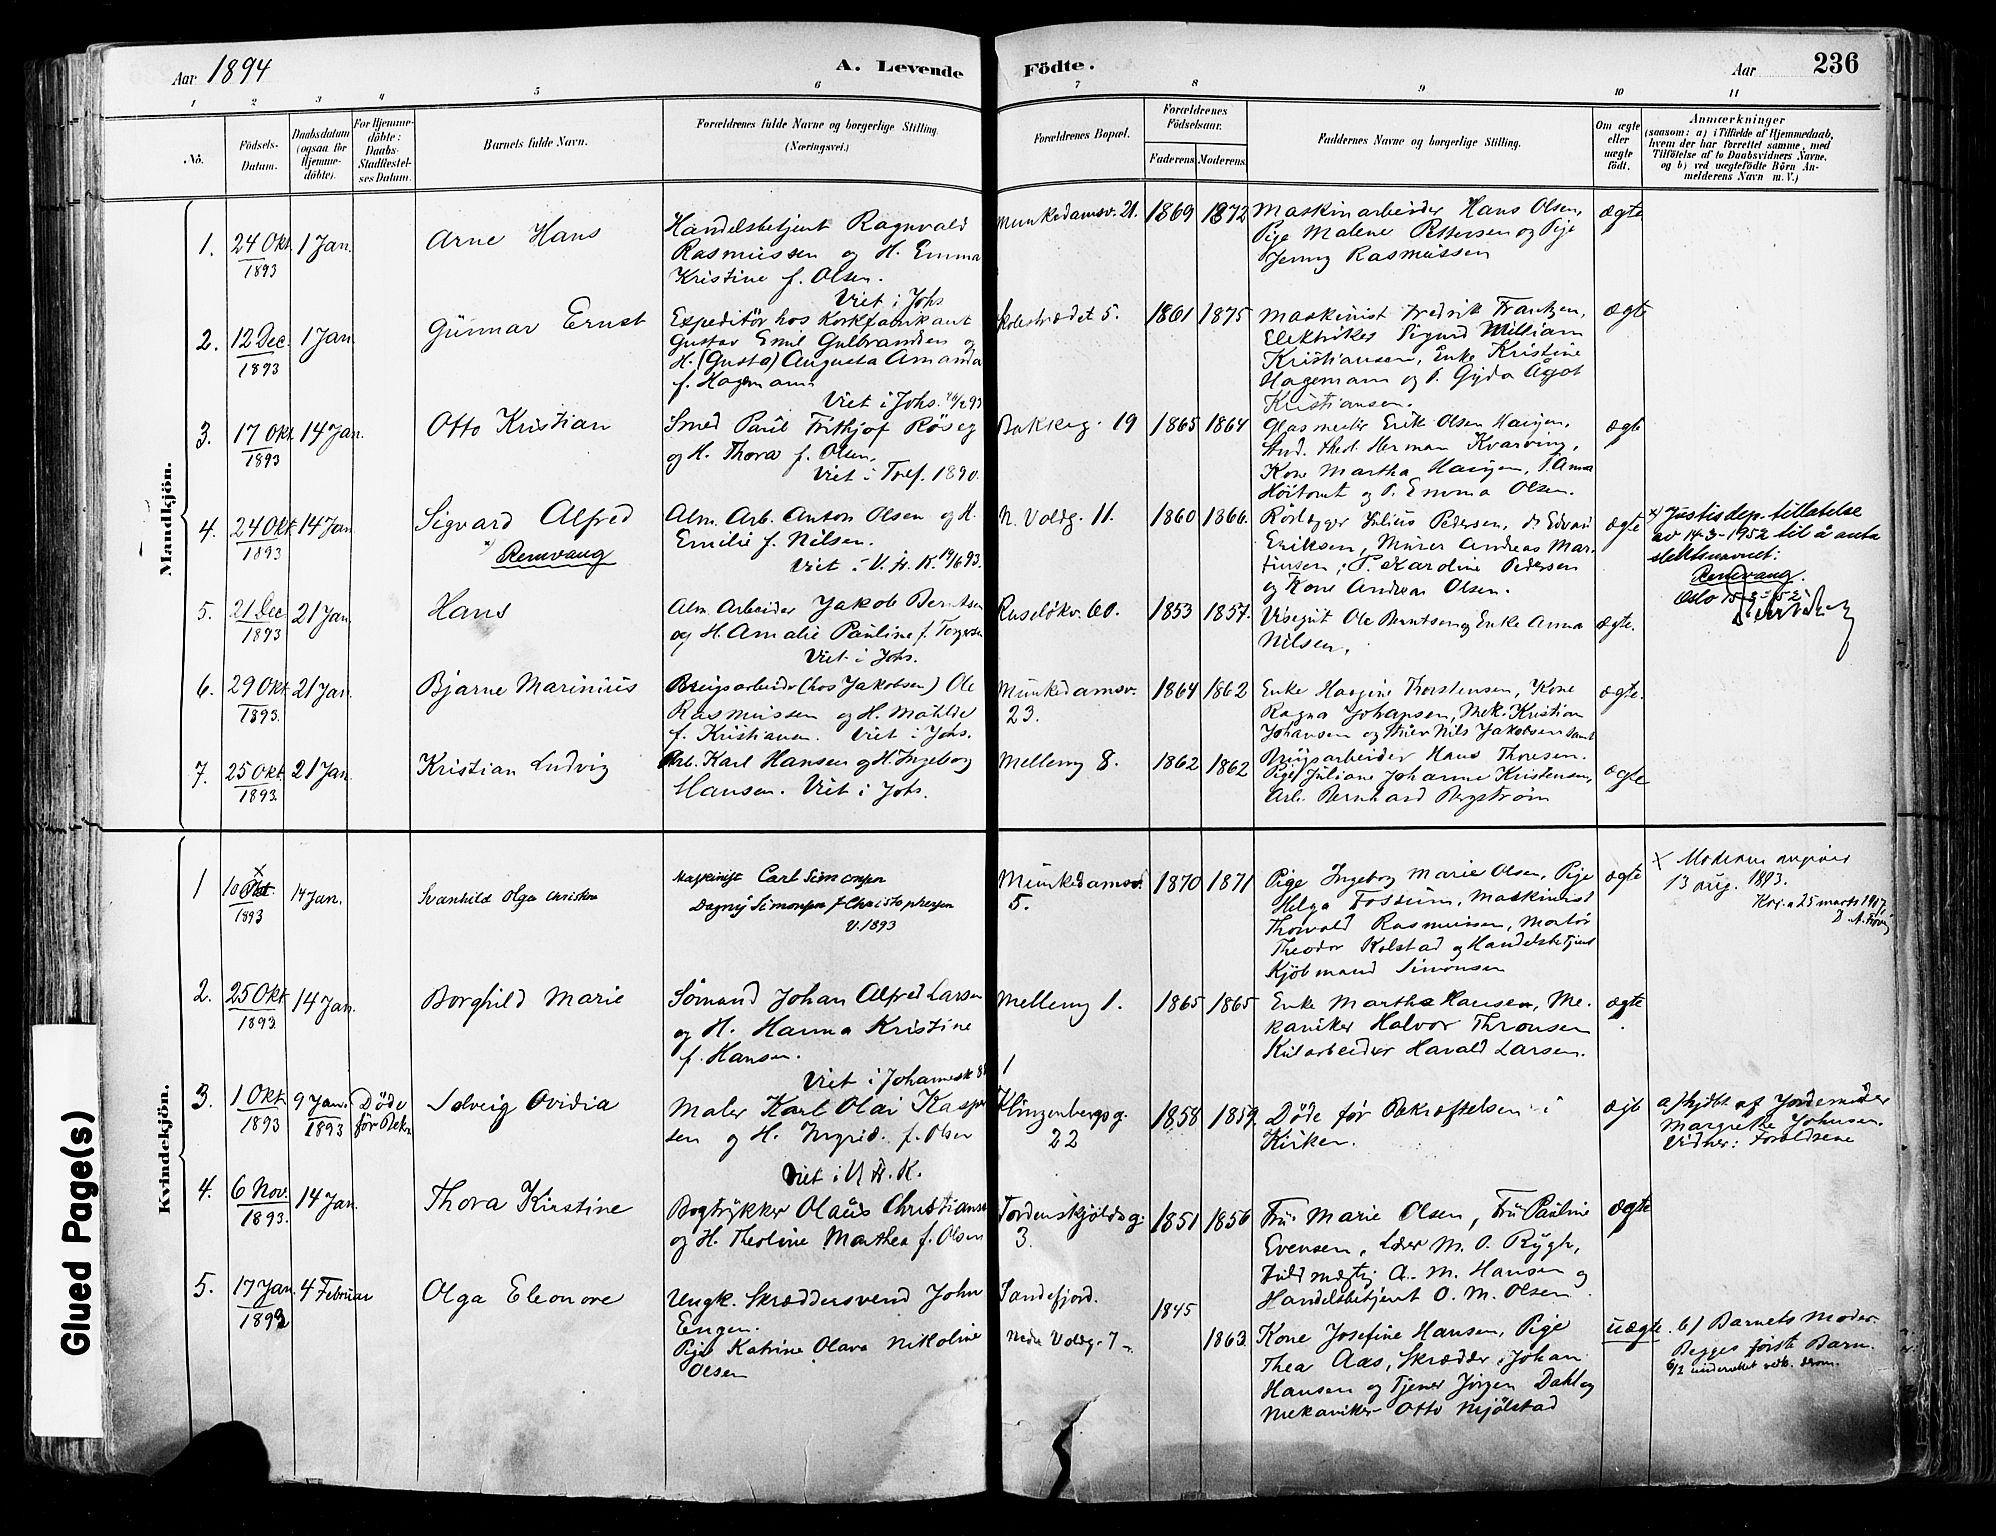 Aar 1894
A. Levende
Födte.
Aar
236
1
2
3
4
5
6
7
8
9
10
11
No.
Födsels-
Datum.
Daabsdatum
(ogsaa for
Hjemme-
döbte).
For Hjemme-
döbte:
Daabs-
Stadfæstel-
ses Datum.
Barnets fulde Navn.
Forældrenes fulde Navne og borgerlige Stilling.
(Næringsvei.)
Forældrenes Bopæl.
Forældrenes
Födselsaar.
Faderens.
Moderens.
Faddernes Navne og borgerlige Stilling.
Om ægte
eller
uægte
födt.
Anmærkninger
(saasom: a) i Tilfælde af Hjemmedaab,
hvem der har forrettet samme, med
Tilföielse af to Daabsvidners Navne,
og b) ved uægtefödte Börn An-
melderens Navn m. V.)
Mandkjön.
1.
24 Okt.
1893
1 Jan.
Arne Hans
Handelsbetjent Ragnvald
Rasmussen og H. Emma
Kristine f. Olsen.
Viet i Johs
Munkedamsv. 21.
1869
1872
Maskinarbeider Hans Olsen,
Pige Malene Pettersen og Pige
Jenny Rasmussen
ægte
2.
12 Dec.
1893
1 Jan.
Gunnar Ernst
Expeditör hos Korkfabrikant
Gustav Emil Gulbrandsen og
H. (Gusta) Augusta Amanda
f. Hagemann
Viet i Johs. 93
Skolestrædet 5.
1861
1875
Maskinist Fredrik Frantzen,
Elektriker Sigurd William
Kristiansen, Enke Kristine
Hagemann og P. Gyda Ågot
Kristiansen.
ægte
3.
17 Okt.
1893
14 Jan.
Otto Kristian
Smed Paul Frithjof Röseg
og H. Thora f. Olsen.
Viet i Tref. 1890.
Bakkeg. 19
1865
1864
Glasmester Erik Olsen Haugen,
Stud. theol. Herman Kvarving,
Kone Martha Haugen, P. Anna
Höitomt og P. Emma Olsen.
ægte
4.
24 Okt.
1893
14 Jan.
Sigvard Alfred
x) Remvang
Alm. Arb. Anton Olsen og H.
Emilie f. Nilsen.
Viet i V. A. K. 19/6 93.
N. Voldg. 11.
1860
1866.
Rörlægger Julius Pedersen, do Edvard
Eriksen, Murer Andreas Mar-
tinsen, P. Karoline Pedersen
og Kone Andrea Olsen.
ægte
x) Justisdep. tillatelse
av 14-3-1952 til å anta
slektsnavnet:
Remvang.
Oslo
5.
21 Dec
1893
21 Jan.
Hans
Alm. Arbeider Jakob Berntsen
og H. Amalie Pauline f. Torgersen
Viet i Johs.
Ruselökv. 60.
1853
1857.
Visergut Ole Berntsen og Enke Anna
Nilsen.
ægte.
6.
29 Okt.
1893.
21 Jan.
Bjarne Marinius
Brugsarbeider (hos Jakobsen) Ole
Rasmussen og H. Mathilde
f. Kristiansen. Viet i Johs.
Munkedamsv.
23.
1864
1862
Enke Haagine Thorstensen, Kone
Ragna Johansen, Mek. Kristian
Johansen og Skriver Nils Jakobsen samt
ægte.
7.
25 Okt.
1893.
21 Jan.
Kristian Ludvig
Arb. Karl Hansen og H. Ingeborg
Hansen. Viet i Johs.
Mellemg 8.
1862
1862
Brugsarbeider Hans Thoresen.
Pige Juliane Johanne Kristensen,
Arb. Bernhard Bergström
ægte
Kvindekjön.
1
10 Okt. x
1893
14 Jan.
Svanhild Olga Christine
Maskinist Carl Simonsen
Dagny Simonsen f Christophersen
V. 1893
Munkedamsv.
5.
1870
1871
Pige Ingeborg Marie Olsen, Pige
Helga Fossum, Maskinist
Thorvald Rasmussen, Montör
Theodor Kolstad og Handelsbetjent
Kjöbmand Simonsen
ægte
x Moderen angiver
13 aug. 1893.
Kr.a 25 marts 1917
2.
25 Okt.
1893.
14 Jan.
Borghild Marie
Sömand Johan Alfred Larsen
og H. Hanna Kristine
f. Hansen.
Viet i Johannesk 88
Mellemg 1.
1865
1865
Enke Martha Hansen, Me-
kaniker Halvor Thronsen
Kulsarbeider Harald Larsen.
ægte
3.
1 Okt.
1893
9 Jan.
1893
Döde
för Bekr.
Solveig Ovidia
Maler Karl Olai Kasper-
sen og H. Ingrid. f. Olsen
Viet i V. A. K.
Klingenbergsg.
22
1858
1859.
Döde för Bekræftelsen i
Kirken.
ægte
a/ hjdbt af Jordemoder
Margrethe Johnsen.
Vidner: Forældrene
4.
6 Nov.
1893.
14 Jan.
Thora Kirstine
Bogtrykker Olaus Christiansen
og H. Theoline Marthea f. Olsen
Tordenskjoldsg.
3.
1851
1856
Fru Marie Olsen, Fru Pauline
Evensen, Lærer M. O. Rygh,
Fuldmægtig A. M. Hansen og
Handelsbetjent O. M. Olsen.
ægte
5.
17 Jan.
1893
4 Februar
Olga Eleonore
Ungk. Skræddersvend John
Engen.
Pige Katrine Olava Nikoline
Olsen
Sandefjord.
Nedre Voldg. 7
1845
1863.
Kone Josefine Hansen, Pige
Thea Aas, Skrædder Johan
Hansen og Tjener Jörgen Dahl og
Mekaniker Otto Mjölstad
uægte.
b/ Barnets Moder
Begges förste Barn.
6/2 underrettet vedk. derom.
Glued Page(s)